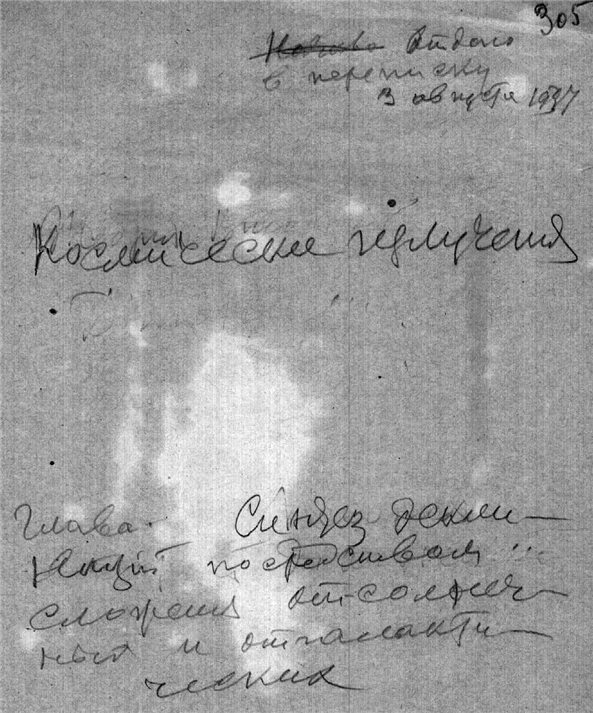 305
Отдано
в переписку
3 августа 1937
Космические излучения
Глава. Синтез декли-
наций посредством
сложения отсолнеч-
ных и отгалакти-
ческих